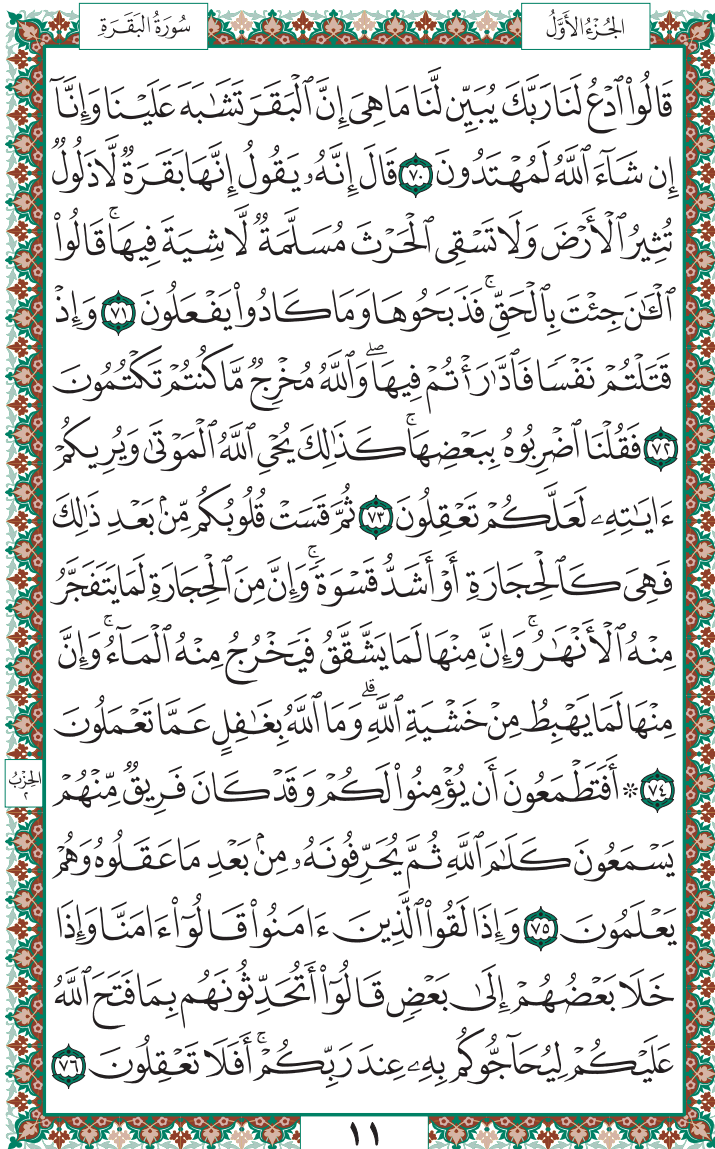 الجُزْءُ الأَوَّلُ
سُورَةُ البَقَرَةِ
قَالُوا۟ ٱدْعُ لَنَا رَبَّكَ يُبَيِّن لَّنَا مَا هِىَ إِنَّ ٱلْبَقَرَ تَشَـٰبَهَ عَلَيْنَا وَإِنَّآ
إِن شَآءَ ٱللَّهُ لَمُهْتَدُونَ ٧٠ قَالَ إِنَّهُۥ يَقُولُ إِنَّهَا بَقَرَةٌ لَّا ذَلُولٌ
تُثِيرُ ٱلْأَرْضَ وَلَا تَسْقِى ٱلْحَرْثَ مُسَلَّمَةٌ لَّا شِيَةَ فِيهَا ۚ قَالُوا۟
ٱلْـَٔـٰنَ جِئْتَ بِٱلْحَقِّ ۚ فَذَبَحُوهَا وَمَا كَادُوا۟ يَفْعَلُونَ ٧١ وَإِذْ
قَتَلْتُمْ نَفْسًا فَٱدَّٰرَْٰٔتُمْ فِيهَا ۖ وَٱللَّهُ مُخْرِجٌ مَّا كُنتُمْ تَكْتُمُونَ
٧٢ فَقُلْنَا ٱضْرِبُوهُ بِبَعْضِهَا ۚ كَذَٰلِكَ يُحْىِ ٱللَّهُ ٱلْمَوْتَىٰ وَيُرِيكُمْ
ءَايَـٰتِهِۦ لَعَلَّكُمْ تَعْقِلُونَ ٧٣ ثُمَّ قَسَتْ قُلُوبُكُم مِّنۢ بَعْدِ ذَٰلِكَ
فَهِىَ كَٱلْحِجَارَةِ أَوْ أَشَدُّ قَسْوَةً ۚ وَإِنَّ مِنَ ٱلْحِجَارَةِ لَمَا يَتَفَجَّرُ
مِنْهُ ٱلْأَنْهَـٰرُ ۚ وَإِنَّ مِنْهَا لَمَا يَشَّقَّقُ فَيَخْرُجُ مِنْهُ ٱلْمَآءُ ۚ وَإِنَّ
مِنْهَا لَمَا يَهْبِطُ مِنْ خَشْيَةِ ٱللَّهِ ۗ وَمَا ٱللَّهُ بِغَـٰفِلٍ عَمَّا تَعْمَلُونَ
٧٤ * أَفَتَطْمَعُونَ أَن يُؤْمِنُوا۟ لَكُمْ وَقَدْ كَانَ فَرِيقٌ مِّنْهُمْ
الحِزْبُ
٢
يَسْمَعُونَ كَلَـٰمَ ٱللَّهِ ثُمَّ يُحَرِّفُونَهُۥ مِنۢ بَعْدِ مَا عَقَلُوهُ وَهُمْ
يَعْلَمُونَ ٧٥ وَإِذَا لَقُوا۟ ٱلَّذِينَ ءَامَنُوا۟ قَالُوٓا۟ ءَامَنَّا وَإِذَا
خَلَا بَعْضُهُمْ إِلَىٰ بَعْضٍ قَالُوٓا۟ أَتُحَدِّثُونَهُم بِمَا فَتَحَ ٱللَّهُ
عَلَيْكُمْ لِيُحَآجُّوكُم بِهِۦ عِندَ رَبِّكُمْ ۚ أَفَلَا تَعْقِلُونَ ٧٦
١١